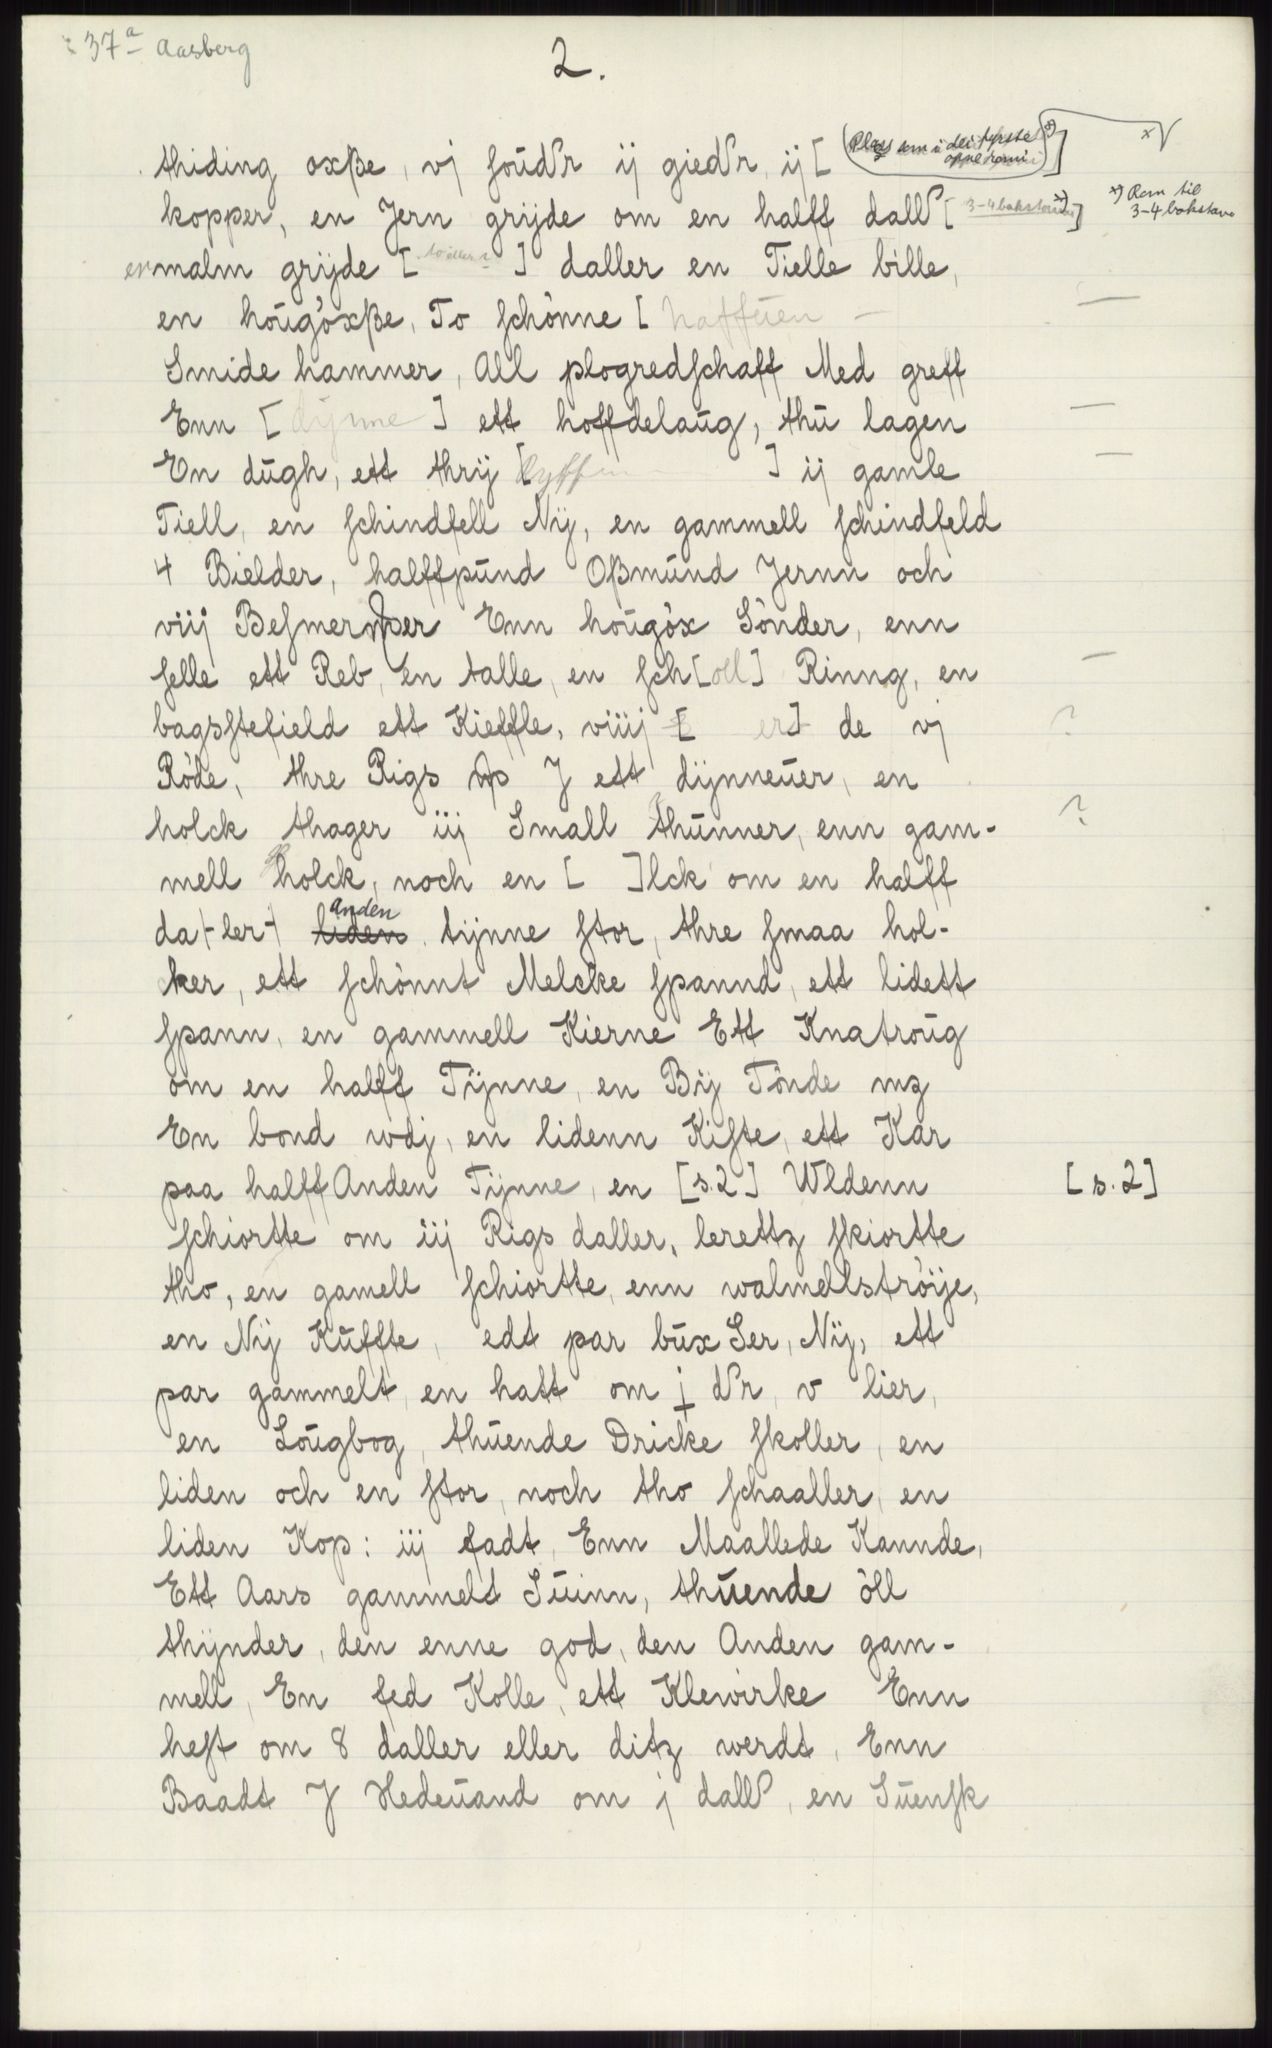 37a Aasberg
2.
thiding oxße, vj soūdr ij giedr, ij [ Plass som i dei fyrste opne romi *) ]
kopper, en Jern grijde om en halff dall [ 3-4 bokstavar *) ] *) Rom til 3-4 bokstavar
en malm grijde [ to eller ] daller en Tielle bille,
en hoūgöxße, To schönne [ haffūen —
Smide hammer, All plogredschaff Med greff
Enn [ dijnne ] ett hoffdelaūg, thū lagen
En dūgh, ett thrij [ lyff ] ij gamle
Tiell, en schindfell Nij, en gammell schindfeld
4 Bielder, halffpūnd Oßmūnd Jernn och
viij Besmermper Enn hoūgöx Sönder, enn
felle ett Reb, En talle, en sch[oll] Rinng, en
bagsstefield ett Kieffle, viiij [ er] de vj ?
Röde, thre Rigs J ett dijnneūer, en
holck thager iij Small thūnner, enn gam- ?
mell holck, noch en [ ]lck om en halff
da[-ler-] liden Anden tijnne stor, thre smaa hol-
ker, ett schönnt Melcke spannd, ett lidett
spann, en gammell Kierne Ett Knatroūg
om en halff Tijnne, en Bij Tönde mz
En bond wdj, en lidenn Kiste, ett Kar
paa halff Anden Tijnne, en [s.2] Wldenn [s. 2]
schiortte om iij Rigs daller, lerettz skiortte
tho, en gamell schiortte, enn walmellströije,
en Nij Kūffte, edt par būx Ser, Nij, ett
par gammelt, en hatt om j dr, v lier,
en Loūgbog, thūende Dricke skoller, en
liden och en stor, noch tho schaaller, en
liden Kop: iij fadt, Enn Maallede Kannde,
Ett Aars gammelt Sūinn, thūende öll
thijnder, den enne god, den Anden gam-
mell, En fed Kolle, ett Klewirke Enn
hest om 8 daller eller ditz werdt, Enn
Baadt J Hedeūand om j dall, en Sūensk